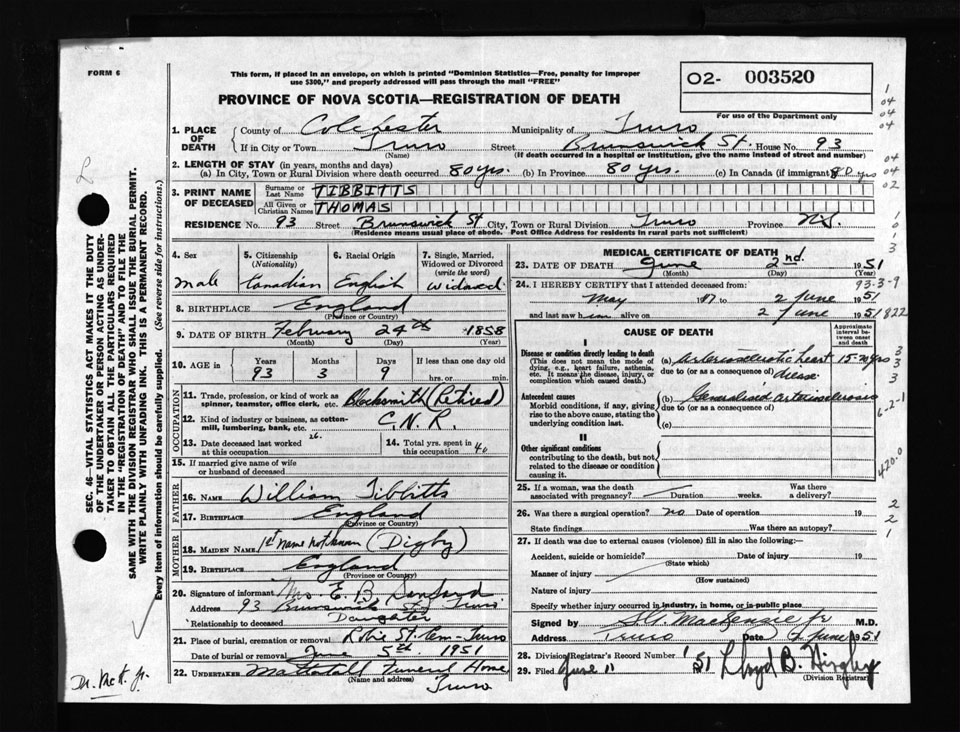 FORM 6
This form, if placed in an envelope, on which is printed "Dominion Statistics—Free, penalty for improper
use $300," and properly addressed will pass through the mail "FREE"
O2- 003520
PROVINCE OF NOVA SCOTIA—REGISTRATION OF DEATH
For use of the Department only
1. PLACE OF DEATH
County of Colchester Municipality of Truro
If in City or Town Truro Street Brunswick St. House No. 93
(Name) (If death occurred in a hospital or institution, give the name instead of street and number)
2. LENGTH OF STAY (in years, months and days)
(a) In City, Town or Rural Division where death occurred 80 yrs. (b) In Province 80 yrs. (c) In Canada (if immigrant) 80 yrs
3. PRINT NAME OF DECEASED
Surname or Last Name TIBBITTS
All Given or Christian Names THOMAS
RESIDENCE No. 93 Street Brunswick St City, Town or Rural Division Truro Province N.S.
(Residence means usual place of abode. Post Office Address for residents in rural parts not sufficient)
4. Sex
Male
5. Citizenship (Nationality)
Canadian
6. Racial Origin
English
7. Single, Married, Widowed or Divorced (write the word)
Widowed
8. BIRTHPLACE England
(Province or Country)
9. DATE OF BIRTH February 24th 1858
(Month) (Day) (Year)
10. AGE Years Months Days If less than one day old
93 3 9 hrs. or min.
OCCUPATION
11. Trade, profession, or kind of work as spinner, teamster, office clerk, etc. Blacksmith (Retired)
12. Kind of industry or business, as cotton-mill, lumbering, bank, etc. C.N.R.
13. Date deceased last worked at this occupation 26.
14. Total yrs. spent in this occupation 40
15. If married give name of wife or husband of deceased
FATHER
16. NAME William Tibbitts
17. BIRTHPLACE England
(Province or Country)
MOTHER
18. MAIDEN NAME 1st Name not known (Digby)
19. BIRTHPLACE England
(Province or Country)
20. Signature of informant Mrs E. B. Sanford
Address 93 Brunswick St Truro
Relationship to deceased Daughter
21. Place of burial, cremation or removal Robie St. Cem-Truro
Date of burial or removal June 5th 1951
22. UNDERTAKER Mattatall Funeral Home
(Name and address) Truro
MEDICAL CERTIFICATE OF DEATH
23. DATE OF DEATH June 2nd. 1951
(Month) (Day) (Year)
24. I HEREBY CERTIFY that I attended deceased from:
May 19 to 2 June 1951
and last saw him alive on 2 June 1951
CAUSE OF DEATH
Approximate interval between onset and death
I
Disease or condition directly leading to death (a) Arteriosclerotic heart disease 15-20 yrs
(This does not mean the mode of dying, e.g., heart failure, asthenia, etc. It means the disease, injury, or complication which caused death.)
due to (or as a consequence of)
Antecedent causes (b) Generalised arteriosclerosis
Morbid conditions, if any, giving rise to the above cause, stating the underlying condition last.
due to (or as a consequence of)
(c)
II
Other significant conditions
contributing to the death, but not related to the disease or condition causing it.
25. If a woman, was the death associated with pregnancy? Duration weeks. Was there a delivery?
26. Was there a surgical operation? no Date of operation 19
State findings Was there an autopsy?
27. If death was due to external causes (violence) fill in also the following:—
Accident, suicide or homicide? Date of injury 19
(State which)
Manner of injury
(How sustained)
Nature of injury
Specify whether injury occurred in industry, in home, or in public place
Signed by MacKenzie Jr M.D.
Address Truro Date 2 June 1951
28. Division Registrar's Record Number 151
29. Filed June 11 '51 Lloyd B.
(Division Registrar)
SEC. 46—VITAL STATISTICS ACT MAKES IT THE DUTY
OF THE UNDERTAKER OR PERSON ACTING AS UNDER-
TAKER TO OBTAIN ALL THE PARTICULARS REQUIRED
IN THE "REGISTRATION OF DEATH" AND TO FILE THE
SAME WITH THE DIVISION REGISTRAR WHO SHALL ISSUE THE BURIAL PERMIT.
WRITE PLAINLY WITH UNFADING INK. THIS IS A PERMANENT RECORD.
Every item of information should be carefully supplied. (See reverse side for instructions.)
1
04
04
04
04
04
02
1
0
1
3
93-3-9
822
3
3
3
6-2-1
420.0
2
2
1